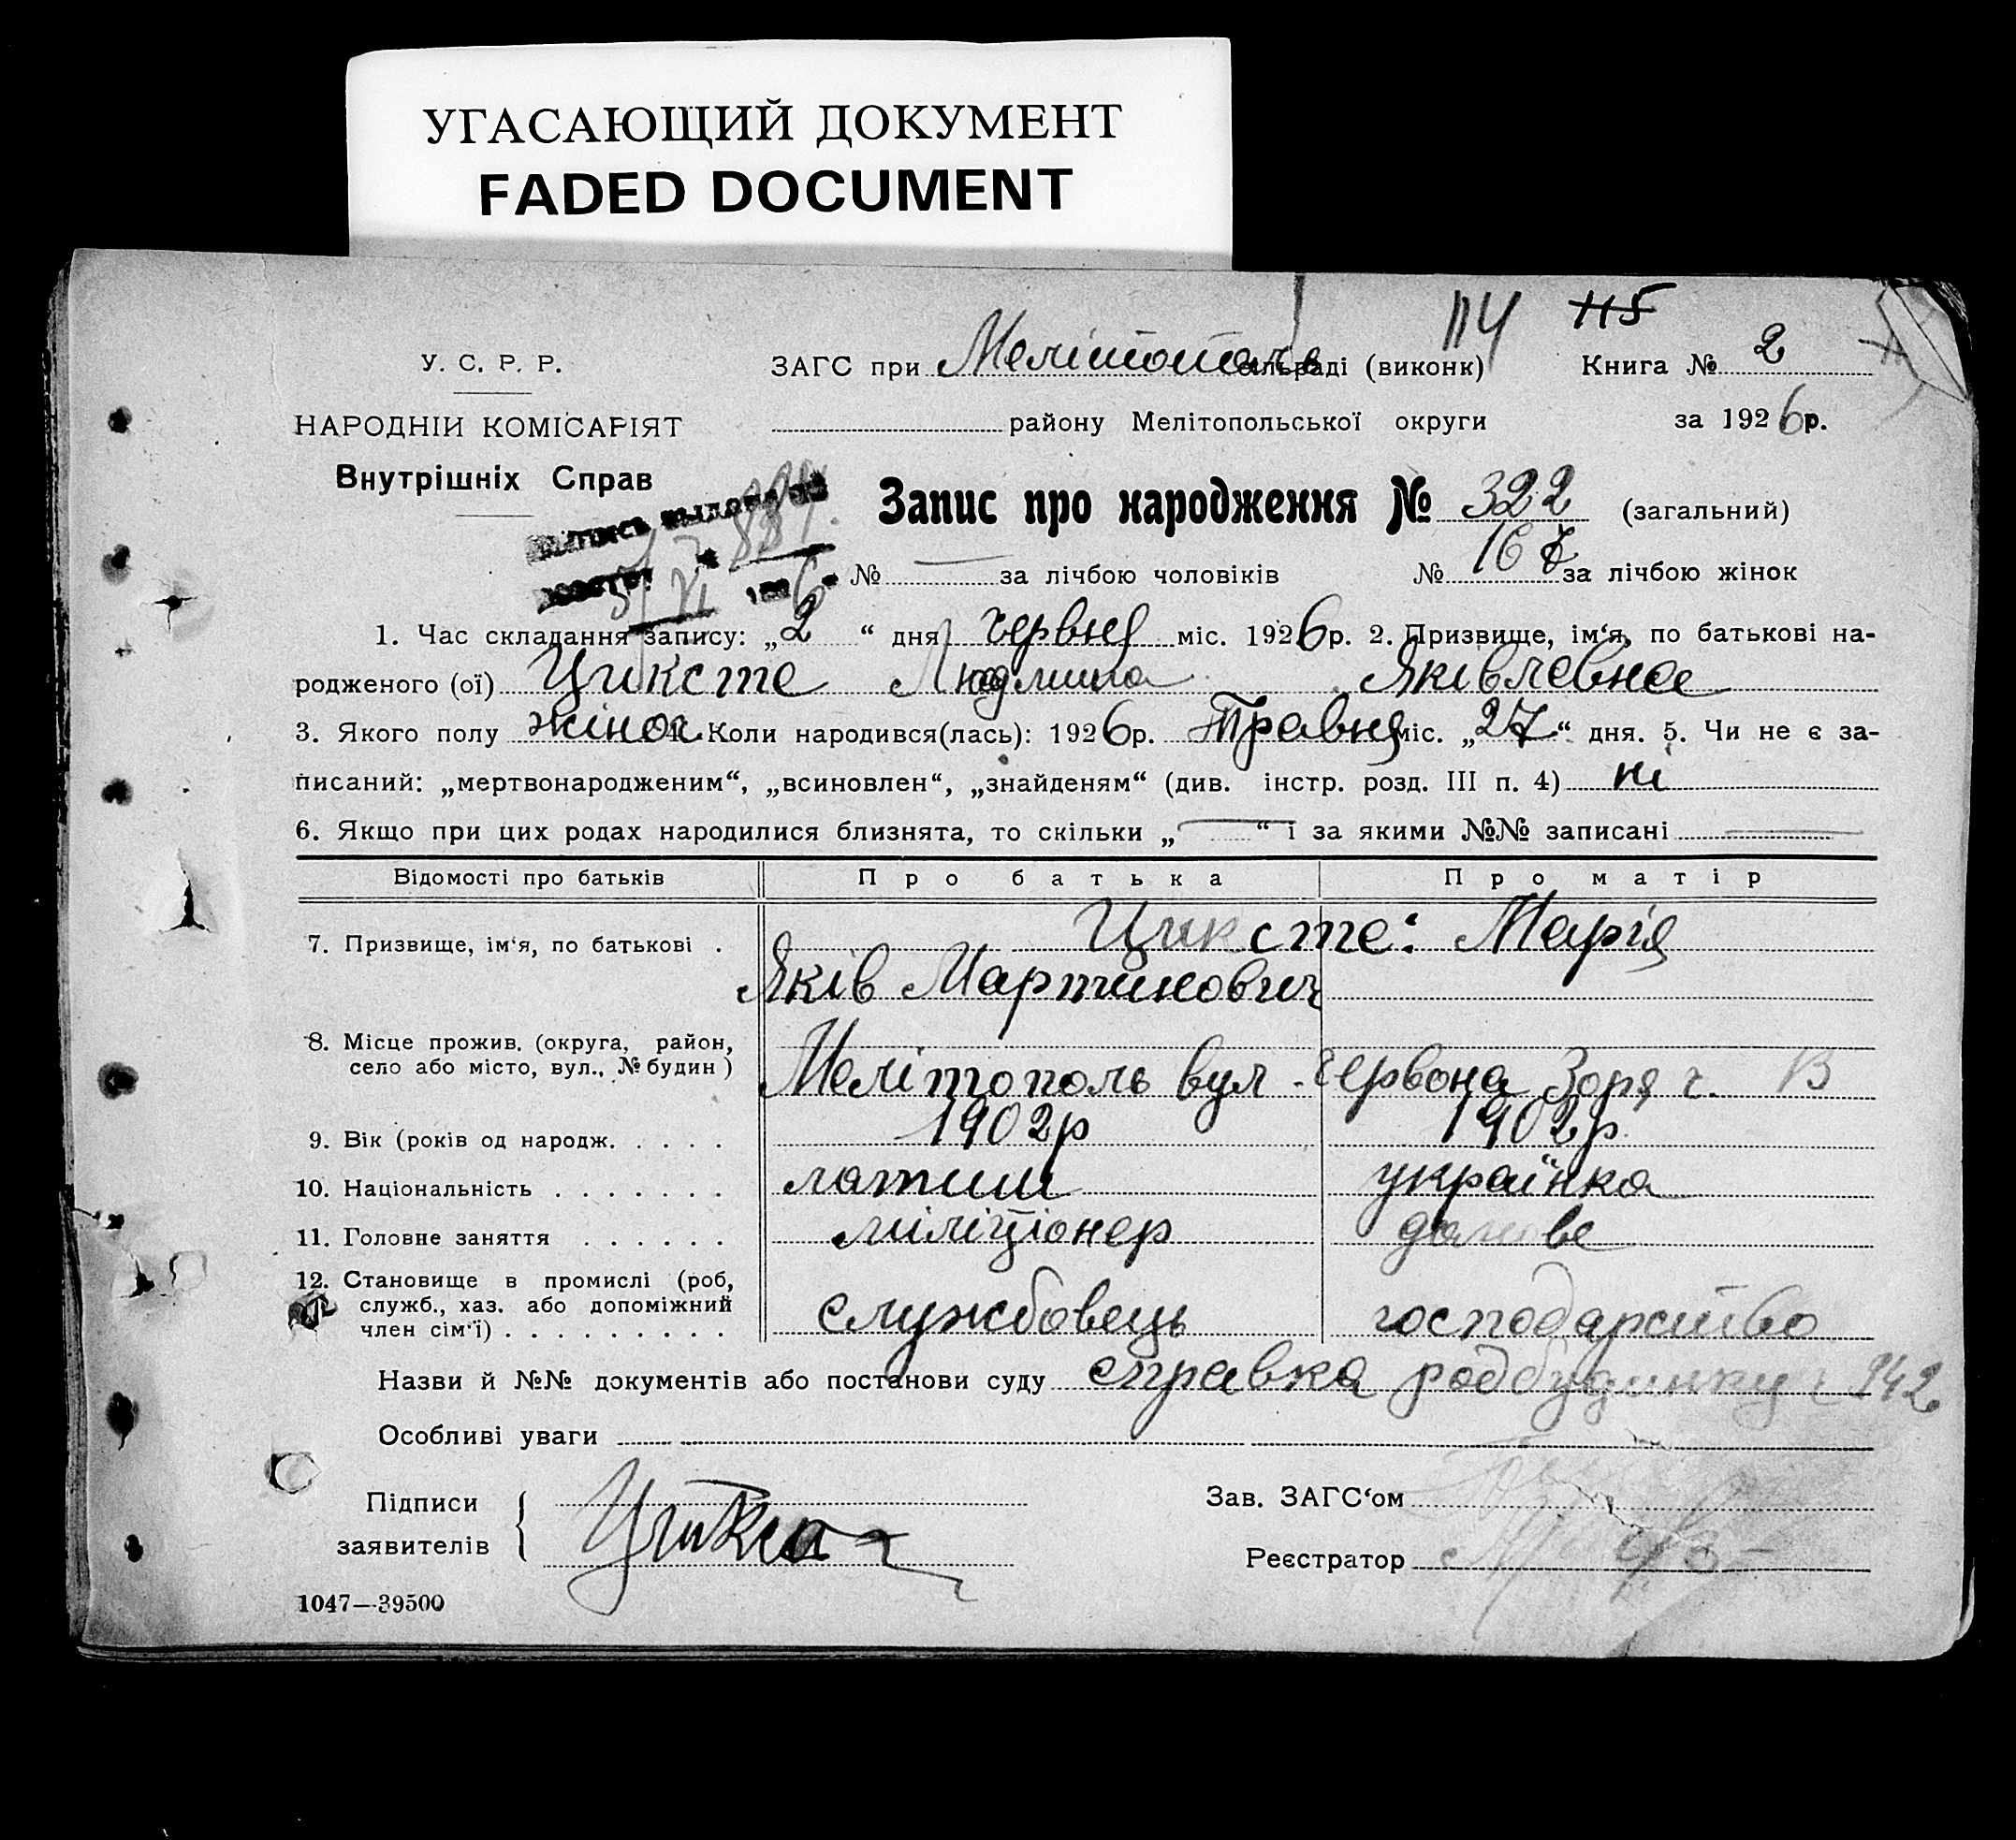 УГАСАЮЩИЙ ДОКУМЕНТ
FADED DOCUMENT
114 115
У. С. Р. Р. ЗАГС при Мелітополь сільраді (виконк) Книга № 2
НАРОДНІЙ КОМІСАРІЯТ району Мелітопольської округи за 1926р.
Внутрішніх Справ
Запис про народження № 322 (загальний)
№ — за лічбою чоловіків № 167 за лічбою жінок
1. Час складання запису: „2“ дня червня міс. 1926р. 2. Призвище, ім‘я, по батькові на-
родженого (ої) Циксте Людмила Яківлевна
3. Якого полу жіноч. 4. Коли народився(лась): 1926р. Травня міс. „27“ дня. 5. Чи не є за-
писаний: „мертвонародженим“, „всиновлен“, „знайденям“ (див. інстр. розд. III п. 4) ні
6. Якщо при цих родах народилися близнята, то скільки „—“ і за якими №№ записані —
Відомості про батьків Про батька Про матір
7. Призвище, ім‘я, по батькові . Циксте: Марія
Яків Мартинович
8. Місце прожив. (округа, район,
село або місто, вул., № будин) Мелітополь вул. Червона Зоря ч.
9. Вік (років од народж. . . . . 1902р 1902р.
10. Національність . . . . . . . латиш українка
11. Головне заняття . . . . . . міліціонер домове
12. Становище в промислі (роб,
служб., хаз. або допоміжний
член сім‘ї) . . . . . . . . . службовець господарство
Назви й №№ документів або постанови суду справка родбудинку ч 942
Особливі уваги
Підписи Зав. ЗАГС‘ом
заявителів Реєстратор
1047—39500